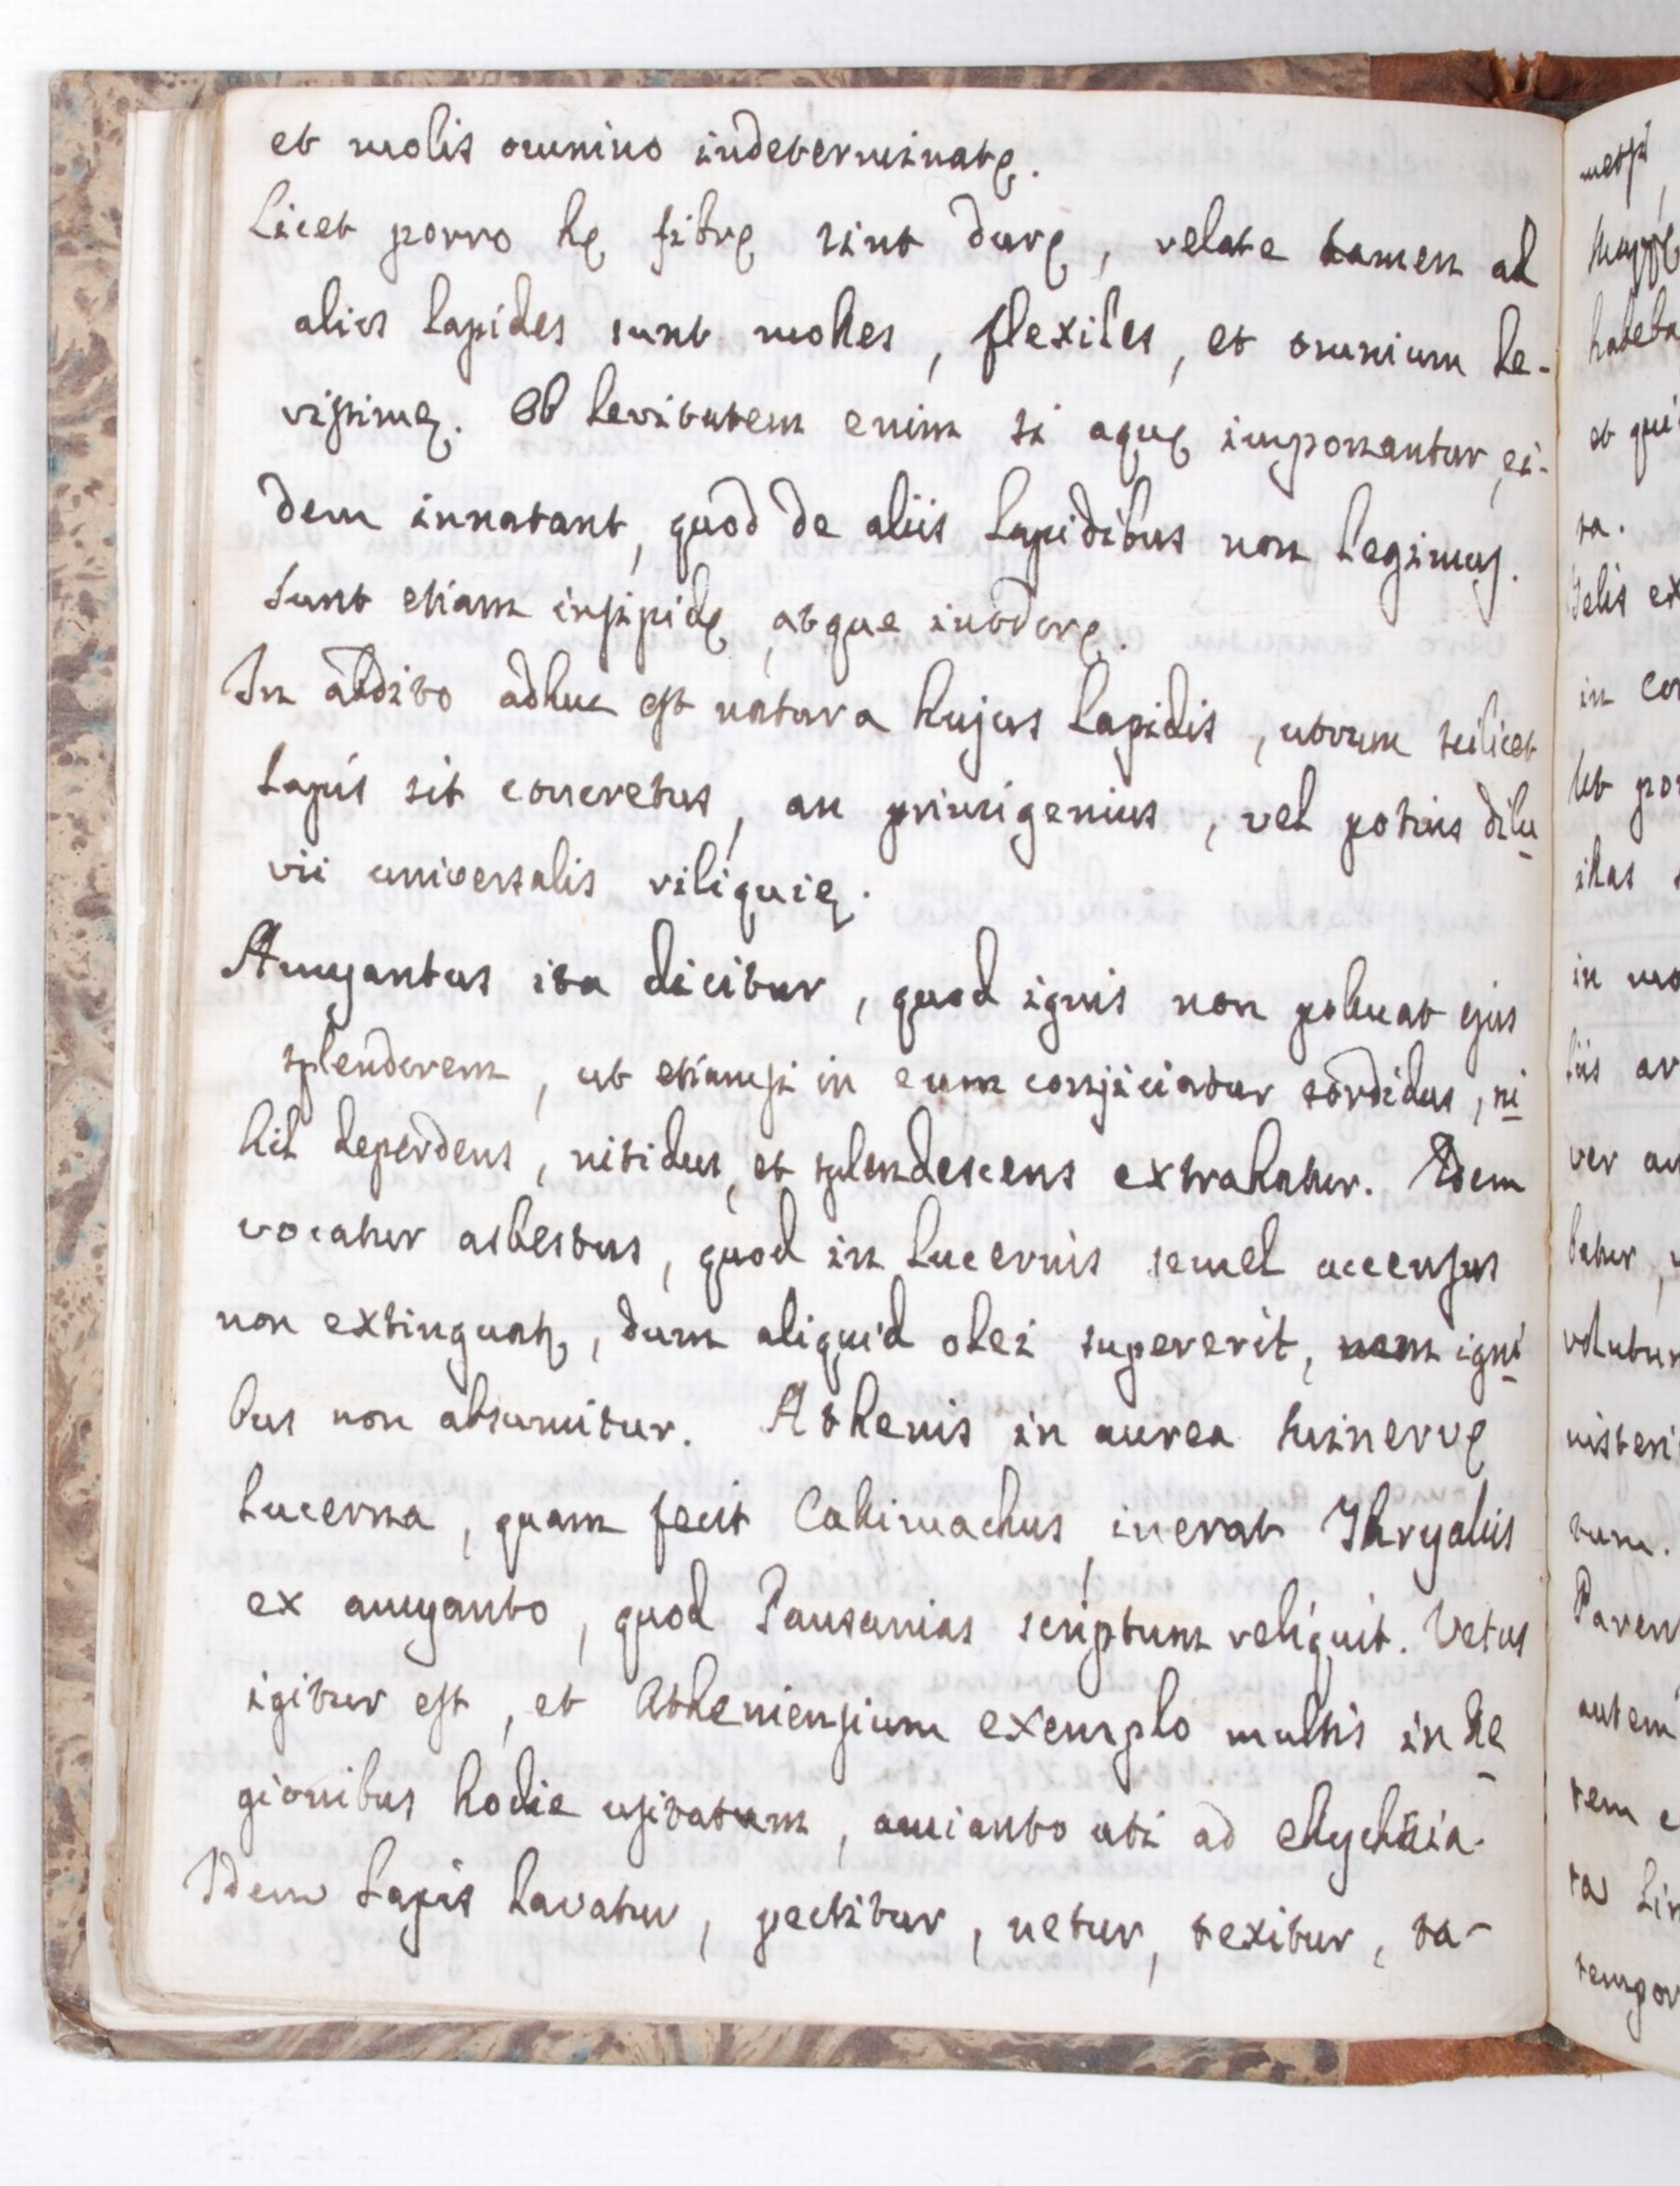 et molis omnino indeterminatę.
Licet porro hę fibrę sint durę, relate tamen ad
alios lapides sunt molles, flexiles, et omnium le-
vissimę. Ob levitatem enim si aquę imponantur, ei-
dem innatant, quod de aliis lapidibus non legimus.
Sunt etiam insipidę, atque inodorę.
In abdito adhuc est natura hujus lapidis, utrum scilicet
lapis sit concretus, an primigenius, vel potius dilu
vii universalis riliquię.
Amyantus ita dicitur, quod ignis non polluat ejus
splendorem, ut etiamsi in eum conjiciatur sordidus, ni
hil deperdens, nitidus, et splendescens extrahatur. Idem
vocatur asbestus, quod in lucernis semel accensus
non extinguatę, dum aliquid olei supererit, nam igni
bus non absumitur. Athenis in aurea Minervę
lucerna, quam fecit Callimachus, inerat Thryallis
ex amyanto, quod Pausanias scriptum reliquit. Vetus
igitur est, et Atheniensium exemplo multis in Re
gionibus hodie usitatum, amianto uti ad ellychnia.
Idem lapis lavatur, pectitur, netur, texitur, ta-
metsi
mappę
et qui
ta.
in
ut
illas
in
liis
ver
batur
tum.
autem
tem
ta